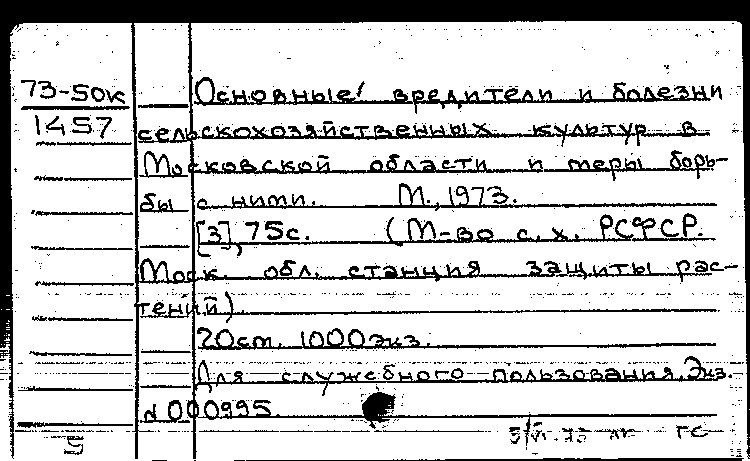 73-50к Основные вредители и болезни
1457 сельскохозяйственных культур в
Московской области и меры борь-
бы с ними. М., 1973.
[3], 75с. (М-во с.х. РСФСР.
Моск. обл. станция защиты рас-
тений).
20см. 1000экз.
Для служебного пользования. Экз.
N 000995.